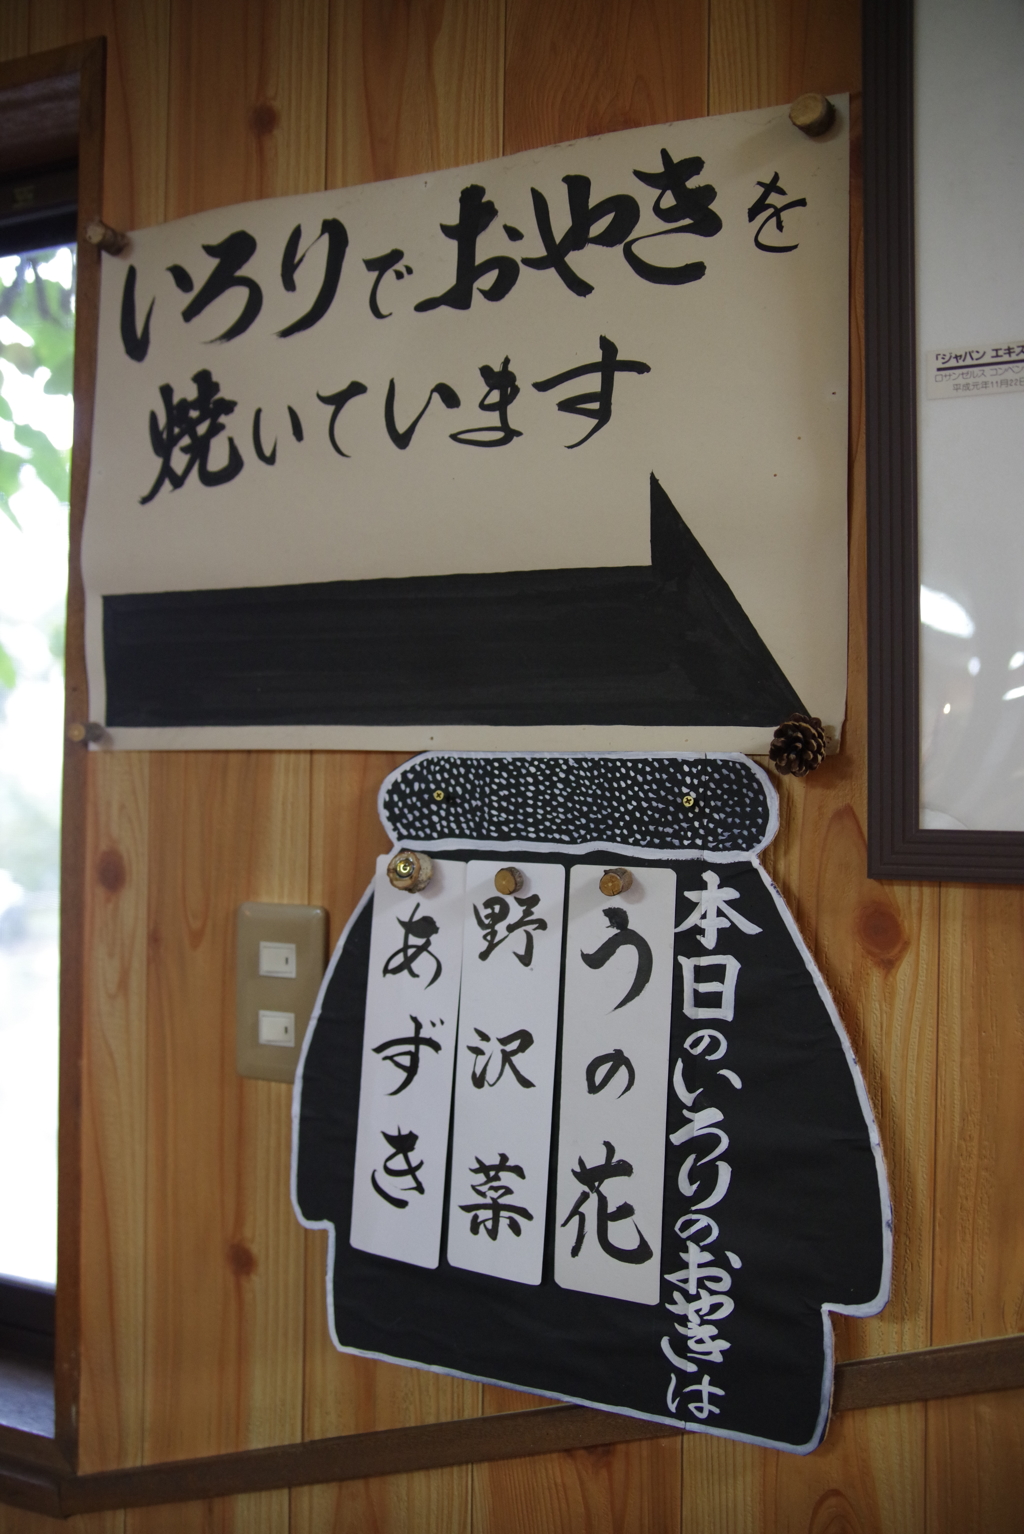 いろりでおやきを
焼いています
本日のいろりのおやきは
うの花
野沢菜
あずき
「ジャパン エキス
ロサンゼルス コンベン
平成元年11月22日